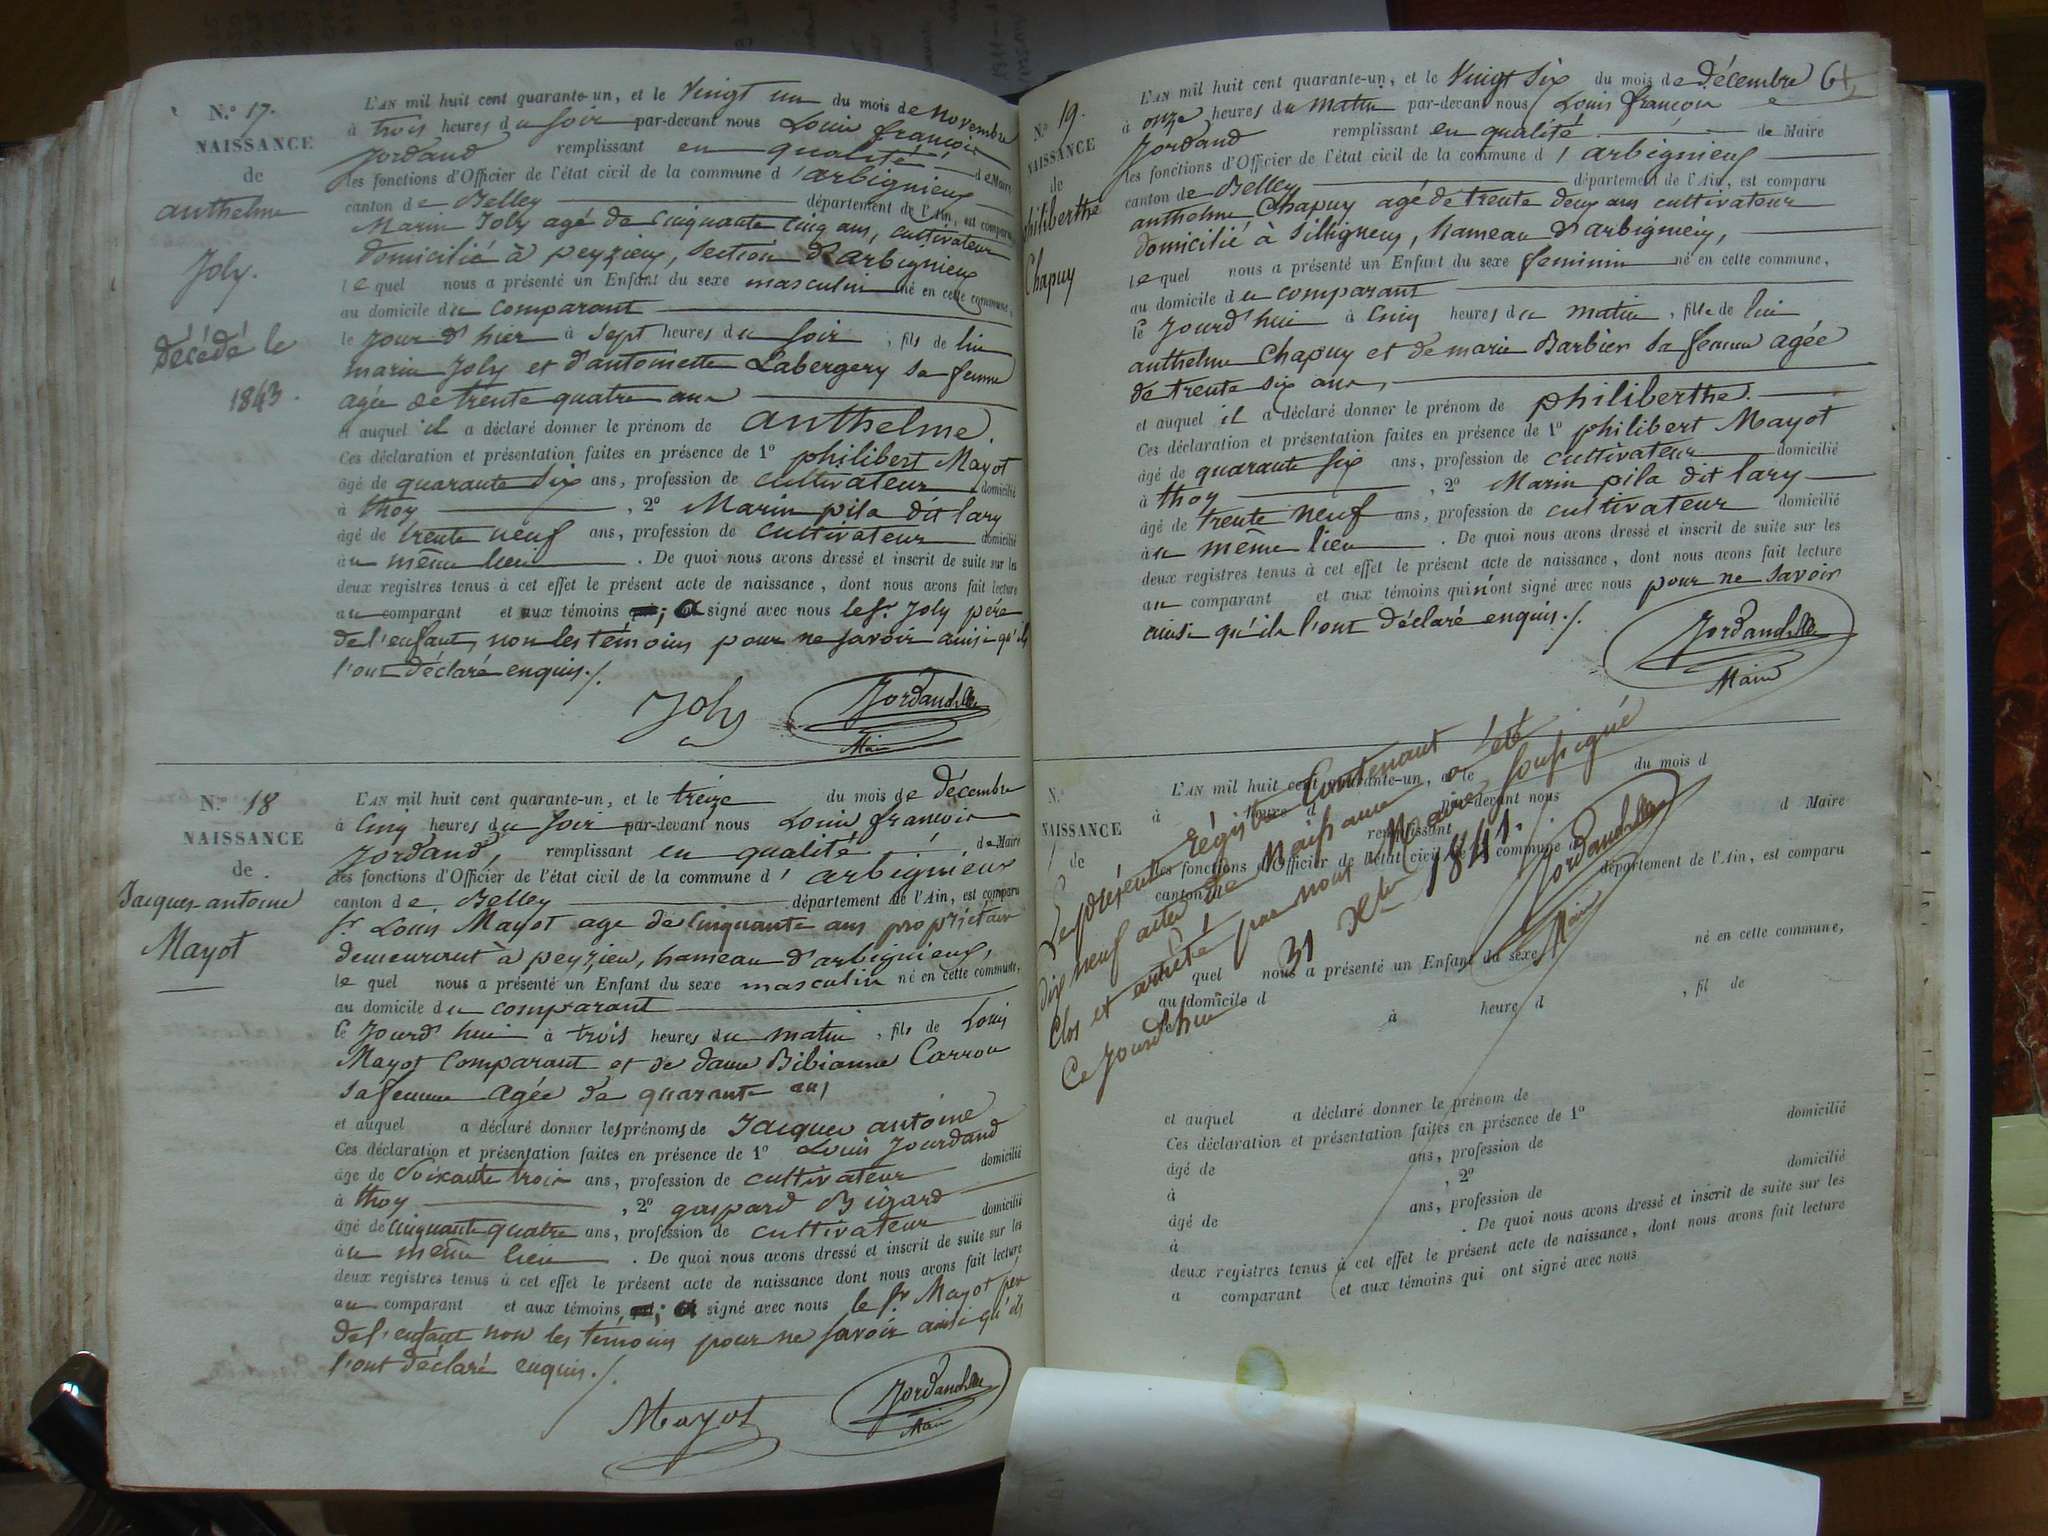 N.º 17.
NAISSANCE
de
anthelme
Joly.
Décédé le
1843.
L'AN mil huit cent quarante-un, et le Vingt un du mois de novembre
à trois heures du soir par-devant nous Louis françois
Jordand remplissant en qualité de Maire
les fonctions d'Officier de l'état civil de la commune d'arbignieux
canton de Belley département de l'Ain, est comparu
Marin Joly agé de Cinquante Cinq ans, cultivateur
domicilié à peyzieux, section d'arbignieux
le quel nous a présenté un Enfant du sexe masculin né en cette commune,
au domicile du comparant
le jour d'hier à sept heures du soir, fils de lui
marin Joly et d'antoinette Labergery sa femme
agée de trente quatre ans
et auquel il a déclaré donner le prénom de anthelme.
Ces déclaration et présentation faites en présence de 1º philibert Mayot
âgé de quarante six ans, profession de cultivateur domicilié
à thoy, 2º Marin pila dit lary
âgé de trente neuf ans, profession de cultivateur domicilié
au même lieu. De quoi nous avons dressé et inscrit de suite sur les
deux registres tenus à cet effet le présent acte de naissance, dont nous avons fait lecture
au comparant et aux témoins ; a signé avec nous le sr Joly père
de l'enfant, non les témoins pour ne savoir ainsi qu'ils
l'ont déclaré enquis./.
Joly Jordand
Maire
N.º 18
NAISSANCE
de
Jacques antoine
Mayot
L'AN mil huit cent quarante-un, et le treize du mois de décembre
à Cinq heures du soir par-devant nous Louis françois
Jordand, remplissant en qualité de Maire
les fonctions d'Officier de l'état civil de la commune d'arbignieux
canton de Belley département de l'Ain, est comparu
sr Louis Mayot age de Cinquante ans propriétaire
demeurant à peyzieu, hameau d'arbignieux,
le quel nous a présenté un Enfant du sexe masculin né en cette commune,
au domicile du comparant
ce Jourd'hui à trois heures du matin, fils de Louis
Mayot Comparant et de dame Bibianne Carron
sa femme agée de quarante ans
et auquel a déclaré donner les prénoms de Jacques antoine
Ces déclaration et présentation faites en présence de 1º Louis Jourdand
âgé de Soixante trois ans, profession de cultivateur domicilié
à thoy, 2º gaspard Bigard
âgé de cinquante quatre ans, profession de cultivateur domicilié
au même lieu. De quoi nous avons dressé et inscrit de suite sur les
deux registres tenus à cet effet le présent acte de naissance dont nous avons fait lecture
au comparant et aux témoins ; a signé avec nous le sr Mayot père
de l'enfant non les témoins pour ne savoir ainsi qu'ils
l'ont déclaré enquis./.
Mayot Jordand
Maire
Nº 19.
NAISSANCE
de
philiberthe
Chapuy
L'AN mil huit cent quarante-un, et le Vingt six du mois de décembre
à onze heures du matin par-devant nous Louis françois
Jordand remplissant en qualité de Maire
les fonctions d'Officier de l'état civil de la commune d'arbignieux
canton de Belley département de l'Ain, est comparu
anthelme Chapuy agé de trente deux ans cultivateur
domicilié à Sillignieux, hameau d'arbignieux,
le quel nous a présenté un Enfant du sexe feminin né en cette commune,
au domicile du comparant
ce Jourd'hui à Cinq heures du matin, fille de lui
anthelme Chapuy et de marie Barbier sa femme agée
de trente six ans,
et auquel il a déclaré donner le prénom de philiberthe.
Ces déclaration et présentation faites en présence de 1º philibert Mayot
âgé de quarante six ans, profession de cultivateur domicilié
à thoy, 2º Marin pila dit lary
âgé de trente neuf ans, profession de cultivateur domicilié
au même lieu. De quoi nous avons dressé et inscrit de suite sur les
deux registres tenus à cet effet le présent acte de naissance, dont nous avons fait lecture
au comparant et aux témoins qui n'ont signé avec nous pour ne savoir
ainsi qu'ils l'ont déclaré enquis./.
Jordand
Maire
N.º
NAISSANCE
de
L'AN mil huit cent quarante-un, et le du mois d
à heure d par-devant nous
remplissant d Maire
les fonctions d'Officier de l'état civil de la commune d
canton d département de l'Ain, est comparu
quel nous a présenté un Enfant du sexe né en cette commune,
au domicile d
le à heure d, fil de
et auquel a déclaré donner le prénom de
Ces déclaration et présentation faites en présence de 1º
âgé de ans, profession de domicilié
à, 2º
âgé de ans, profession de domicilié
à. De quoi nous avons dressé et inscrit de suite sur les
deux registres tenus à cet effet le présent acte de naissance, dont nous avons fait lecture
a comparant et aux témoins qui ont signé avec nous
Le présent régistre Contenant
dix neuf actes de Naissance a été
Clos et arrêté par nous Maire soussigné
Ce jourd'hui 31 Xbre 1841.
Jordand
Maire